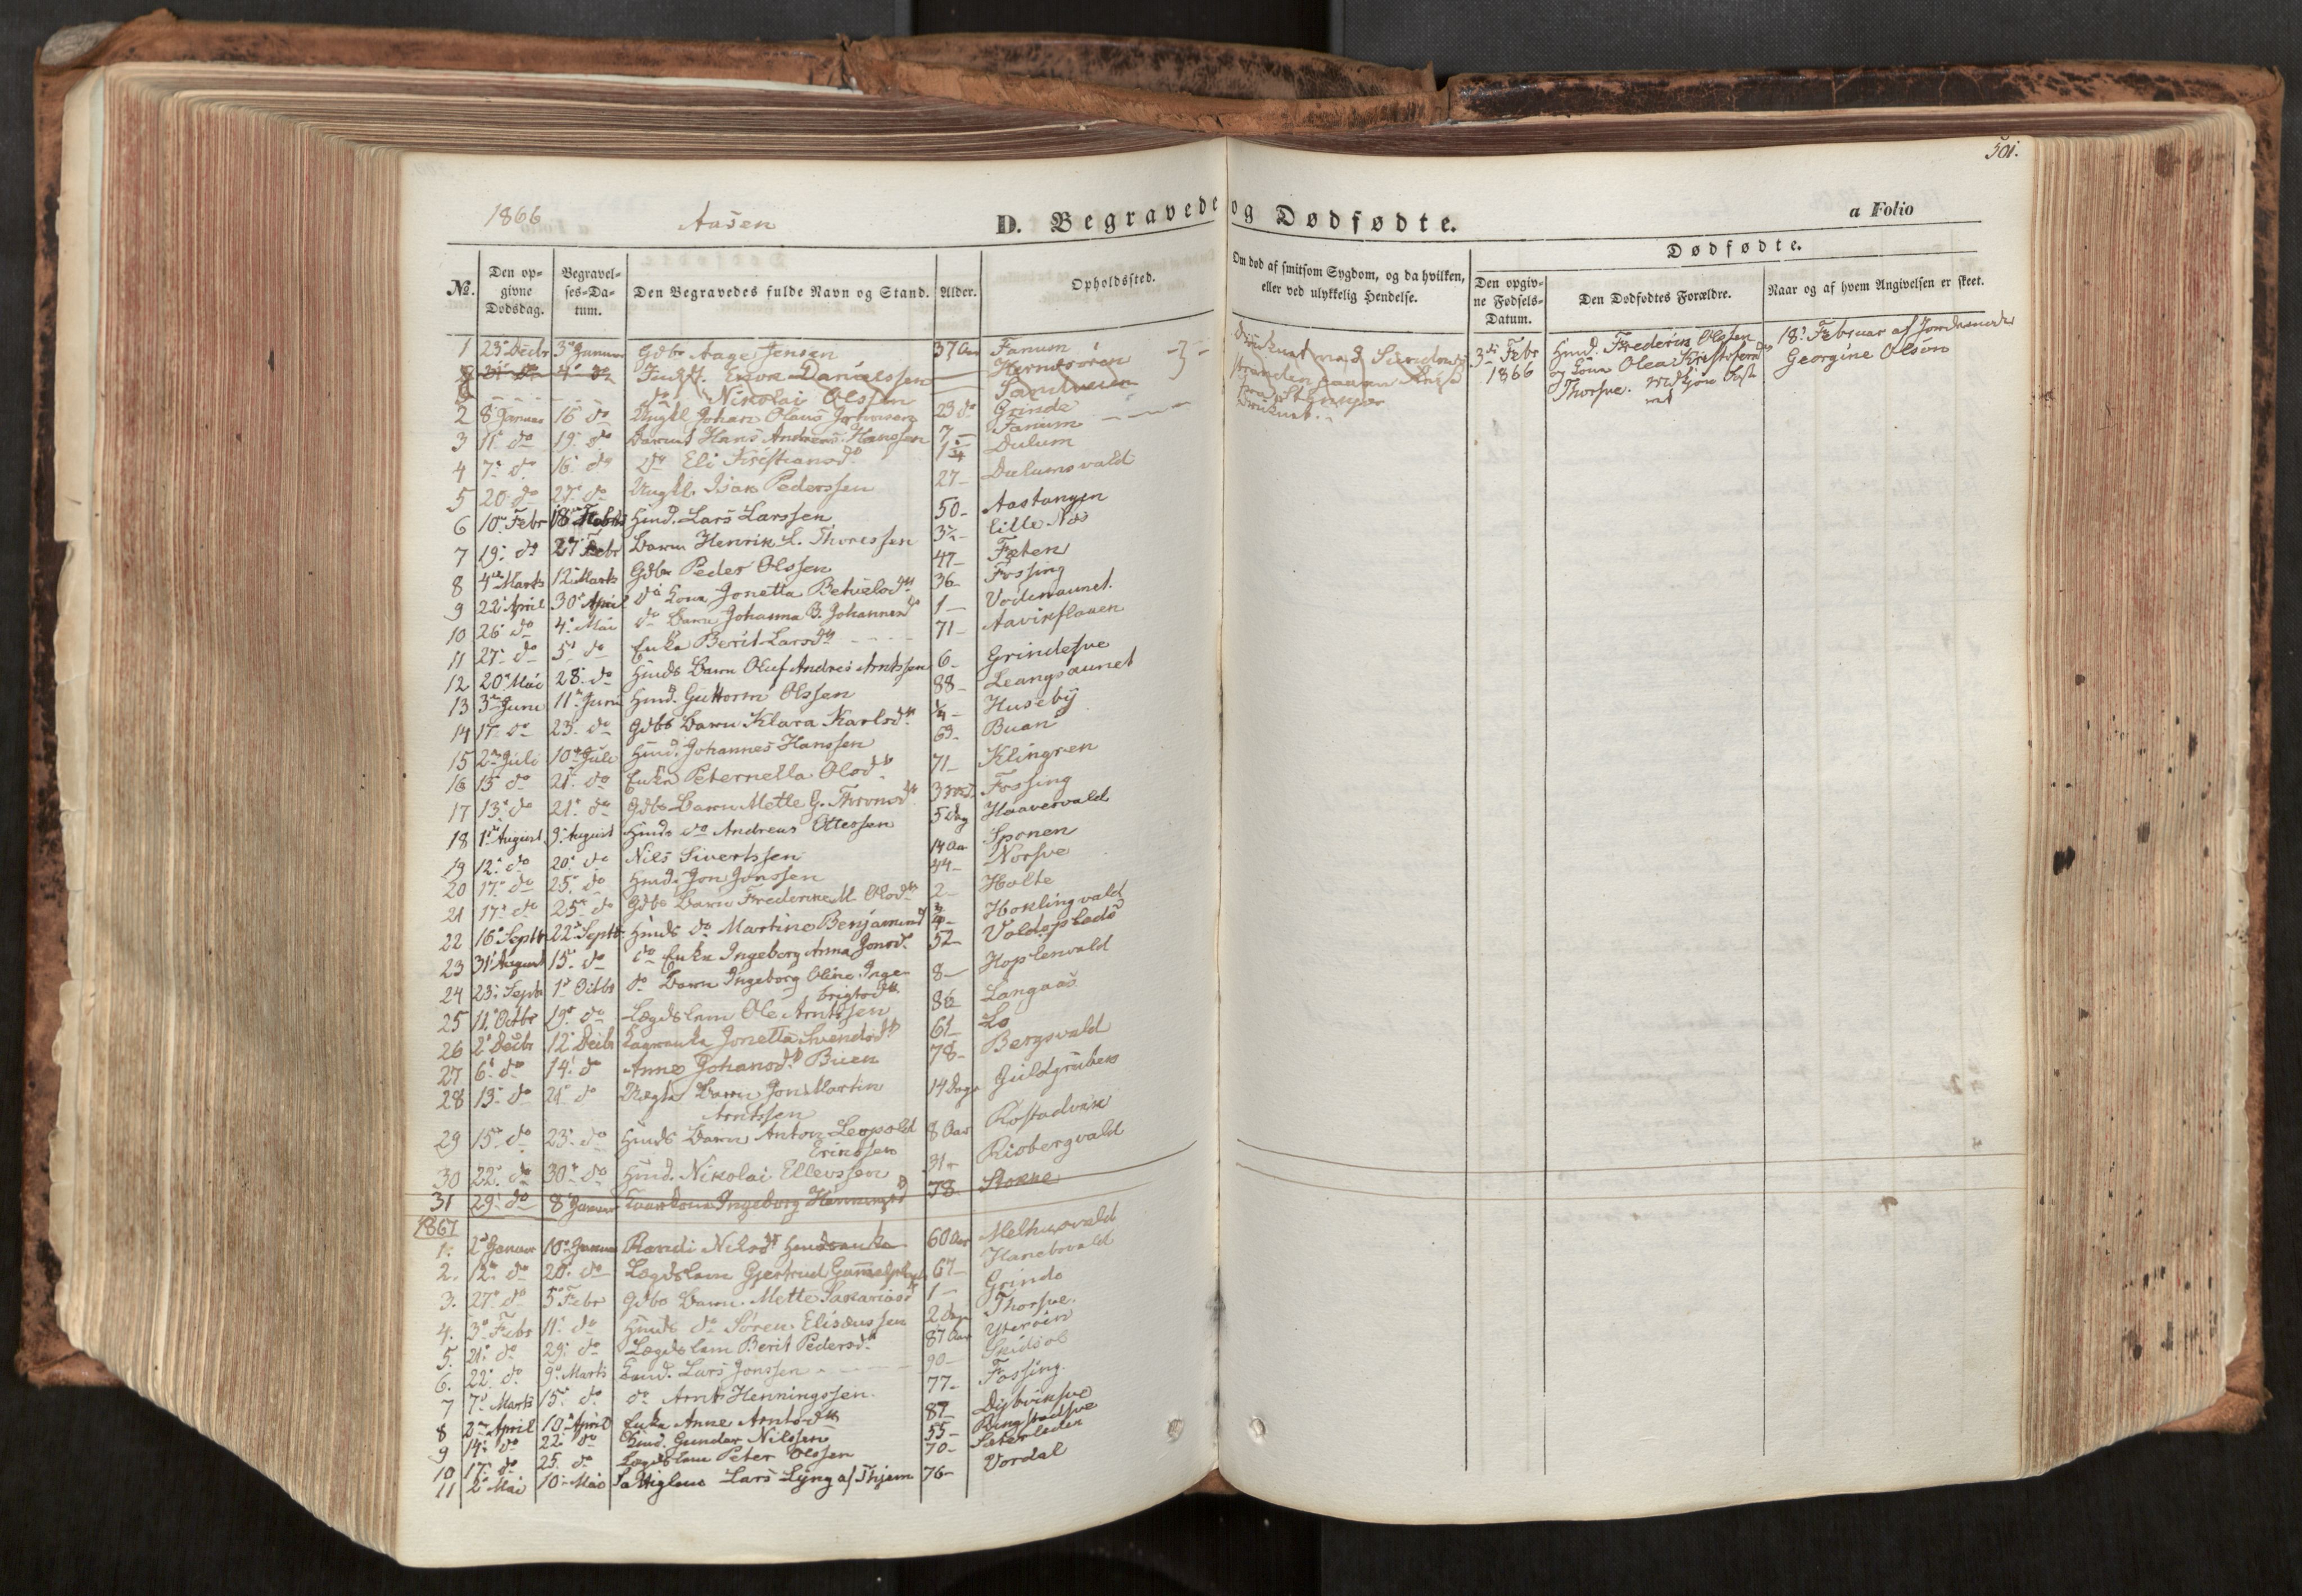 501.
1866 Aasen D. Begravede og Dødfødte. a Folio
Dødfødte.
№. Den opgivne Dødsdag. Begravelses-Datum. Den Begravedes fulde Navn og Stand. Alder. Opholdssted. Om død af smitsom Sygdom, og da hvilken, eller ved ulykkelig Hendelse. Den opgivne Fødsels-Datum. Den Dødfødtes Forældre. Naar og af hvem Angivelsen er skeet.
1 23 Decbr 3 Januar Gdbr Aage Jensen 37 Aar Fanum
31 do 4 do Danielssen
do Nikolai Olssen
2 8 Januar 16 do Ungkl Johan Olaus 23 do Grinde
3 11 do 19 do Barnet Hans Andreas Hanssen 7 — Fanum
4 7 do 16 do do Eli Kristiansd. 1 Dulum
5 20 do 27 do Ungkl. Isak Pederssen 27 — Dulumsvald
6 10 Febr 18 Hmd. Lars Larssen 50 - Aastangen
7 19 do 27 Febr Barn Henrik L. Thoressen Lille Næs
8 4 Marts 12 Marts Gdbr Peder Olssen 47 - Fæten
9 22 April 30 April do Kone Jonetta 36 - Fossing
10 26 do 4 Mai do Barn Johanna B. Johannesd 1 — Vodenaunet
11 27 do 5 do Enke Berit Larsdtr 71 — Aavikflaaen
12 20 Mai 28 do Hmds Barn Oluf Andreas Arntssen 6 - Grindesve
13 3 Juni 11 Juni Hmd. Guttorm Olssen 88 - Leangsaunet
14 17 do 23 do Gdbs Barn Klara Karlsd. Huseby
15 2 Juli 10 Juli Hmd. Johannes Hanssen 63 - Buan
16 13 do 21 do Enke Peternella Olsd. 71 — Klingren
17 13 do 21 do Gdbs Barn Mette G. 3 Fossing
18 1 August 9 August Hmds do Andreas Ottessen 5 Dag Haavervald
19 12 do 20 do Nils Sivertssen 14 Aar Sponen
20 17 do 25 do Hmd. Jon Jonssen 44 - Norsve
21 17 do 25 do Gdbs Barn Frederikke M. Olsd. 2 - Holte
22 16 Septbr 22 Septbr Hmds do Martine Benjaminsd Hoklingvald
23 31 August 15 do do Enke Ingeborg Anna Jonsd. 52 Voldsplads
24 23 Septbr 1 Octbr do Barn Ingeborg Oline Inge-
brigtsd. 8 — Hoplenvald
25 11 Octbr 19 do Lægdslem Ole Arntssen 86 Langaas
26 2 Decbr 12 Decbr Jonetta Svendsd. 61 - Lo
27 6 do 14 do Anne Johansd. Buen 78 - Bergsvald
28 13 do 21 do Uægte Barn Jon Martin
Arntssen 14 Dage Guldgruben
29 15 do 23 do Hmds Barn Anton Leopold
Erikssen 8 Aar Rostadvik
30 22 do 30 do Hmd. Nikolai Ellevssen 31 - Risbergvald
31 29 do 8 Januar Ingeborg Henningsd 78 Stokke
1867
1. 2 Januar 10 Januar Randi Nilsdtr 60 Aar Melhusvald
2. 12 do 20 do Lægdslem Gjertrud 67 —
3. 27 do 5 Febr Gdbs Barn Mette Sakariasd 1 — Grinde
4. 3 Febr 11 do Hmds do Søren Elisæussen 2 Dage Thorsve
5. 21 do 29 do Lægdslem Berit Pedersd. 87 Aar Ytterøen
6. 22 do 9 Marts Lars Jonssen 90 —
7 7 Marts 15 do do Arnt Henningssen 77 - Fossing
8 2 April 10 April Enke Anne Arntsdtr 87 - Dybviksve
9 14 do 22 do Hmd. Gunder Nilssen 55 - Ringstadsve
10 17 do 25 do Lægdslem Peter Olssen 70 -
11 2 Mai 10 Mai Fattiglem Lars Lyng af 76 - Vordal
3 Febr
1866
Hmd. Frederik Olssen
og Kone Olea
Thorsve.
18 Februar af Jordemoder
Georgine Olsen